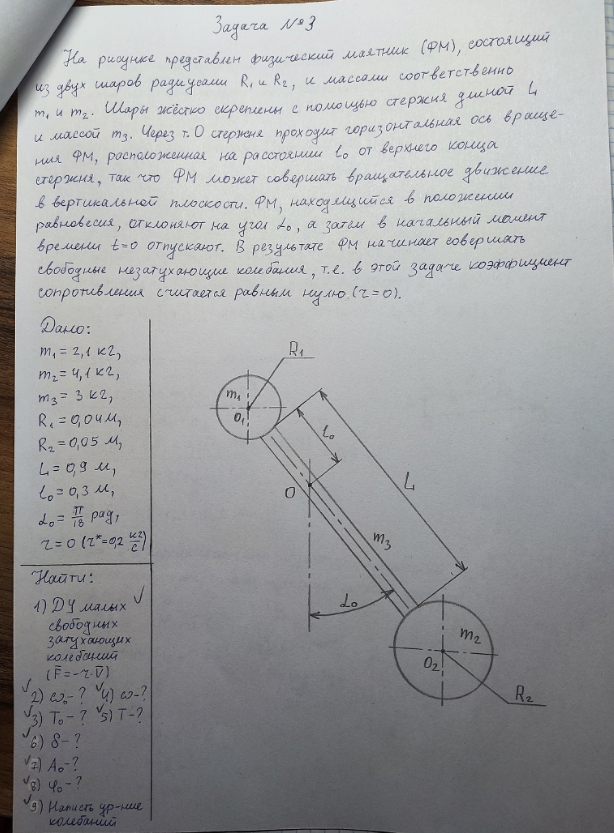 Задача №3
На рисунке представлен физический маятник (ФМ), состоящий
из двух шаров радиусами R₁ и R₂, и массами соответственно
m₁ и m₂. Шары жёстко скреплены с помощью стержня длиной L
и массой m₃. Через т.О стержня проходит горизонтальная ось враще-
ния ФМ, расположенная на расстоянии l₀ от верхнего конца
стержня, так что ФМ может совершать вращательное движение
в вертикальной плоскости. ФМ, находящийся в положении
равновесия, отклоняют на угол α₀, а затем в начальный момент
времени t=0 отпускают. В результате ФМ начинает совершать
свободные незатухающие колебания, т.е. в этой задаче коэффициент
сопротивления считается равным нулю (r=0).
Дано:
m₁ = 2,1 кг,
m₂ = 4,1 кг,
m₃ = 3 кг,
R₁ = 0,04 м,
R₂ = 0,05 м,
L = 0,9 м,
l₀ = 0,3 м,
α₀ = π/18 рад,
r = 0 (r*=0,2 кг/с)
Найти:
1) ДУ малых ✓
свободных
затухающих
колебаний
(F̄ = -r·V̄)
✓2) ω₀-? ✓4) ω-?
✓3) T₀-? ✓5) T-?
✓6) δ-?
✓7) A₀-?
✓8) φ₀-?
✓9) Написть ур-ние
колебаний
R₁
m₁
O₁
l₀
L
O
m₃
α₀
m₂
O₂
R₂